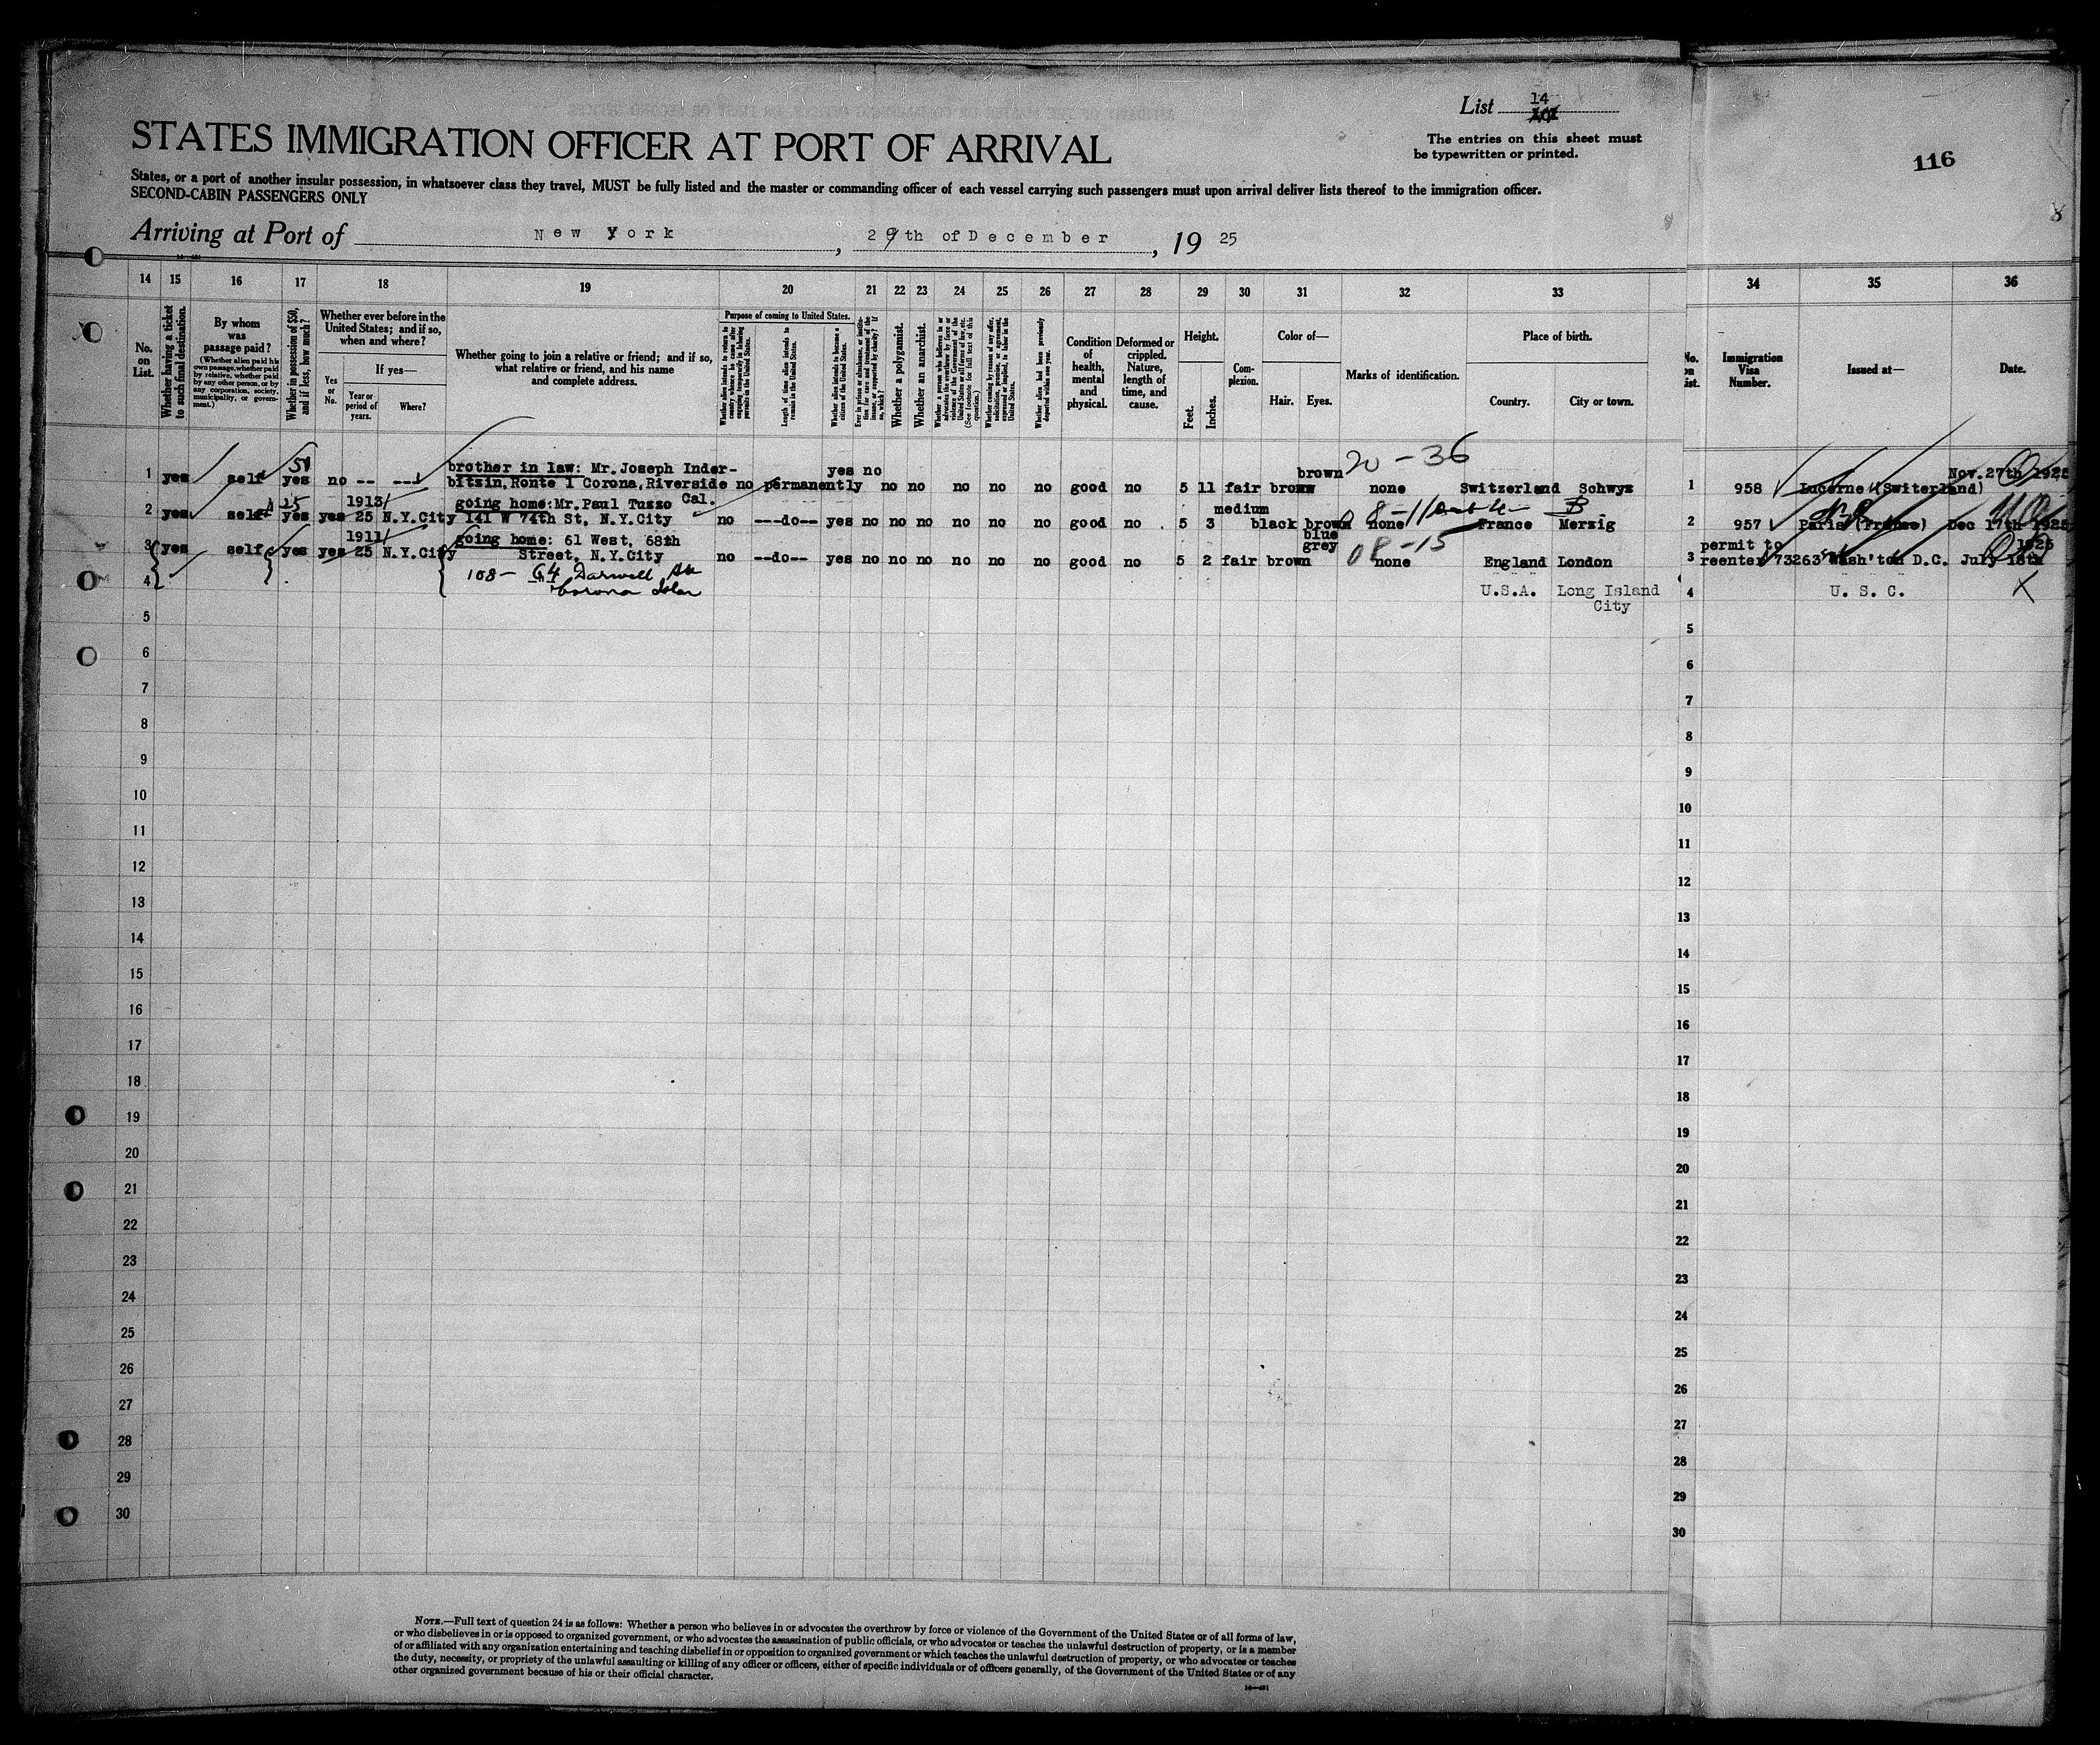 List 14
The entries on this sheet must
be typewritten or printed.
116
STATES IMMIGRATION OFFICER AT PORT OF ARRIVAL
States, or a port of another insular possession, in whatsoever class they travel, MUST be fully listed and the master or commanding officer of each vessel carrying such passengers must upon arrival deliver lists thereof to the immigration officer.
SECOND-CABIN PASSENGERS ONLY
Arriving at Port of New York, 29th of December, 19 25
14 15 16 17 18 19 20 21 22 23 24 25 26 27 28 29 30 31 32 33 34 35 36
No. on List.
Whether having a ticket to such final destination.
By whom was passage paid?
(Whether alien paid his own passage, whether paid by relative, whether paid by any other person, or by any corporation, society, municipality, or government.)
Whether in possession of $50, and if less, how much?
Whether ever before in the United States; and if so, when and where?
Yes or No.
If yes—
Year or period of years.
Where?
Whether going to join a relative or friend; and if so, what relative or friend, and his name and complete address.
Purpose of coming to United States.
Whether alien intends to return to country whence he came after engaging temporarily in laboring pursuits in the United States.
Length of time alien intends to remain in the United States.
Whether alien intends to become a citizen of the United States.
Whether a polygamist.
Whether an anarchist.
Whether coming by reason of any offer, solicitation, promise, or agreement, expressed or implied, to labor in the United States.
Whether alien had been previously deported within one year.
Condition of health, mental and physical.
Deformed or crippled. Nature, length of time, and cause.
Height.
Feet.
Inches.
Complexion.
Color of—
Hair.
Eyes.
Marks of identification.
Place of birth.
Country.
City or town.
No. on List.
Immigration Visa Number.
Issued at—
Date.
50 brother in law: Mr. Joseph Inder- yes no brown 20-36 Nov. 27th 1925
1 yes self yes no -- --- bitzin, Ronte 1 Corona, Riverside no permanently no no no no no good no 5 11 fair brown none Switzerland Schwyz 1 958 Lucerne (Switerland)
25 1913/ going home: Mr. Paul Tuzzo Cal. medium 08-11
2 yes self yes yes 25 N.Y.City 141 W 74th St, N.Y.City no ---do-- yes no no no no no no good no 5 3 black brown none France Merzig 2 957 Paris (France) Dec 17th 1925
1911/ going home: 61 West, 68th blue grey 08-15 permit to 1925
3 yes self yes yes 25 N.Y.City Street, N.Y.City no --do-- yes no no no no no no good no 5 2 fair brown none England London 3 reenter 73263 Wash'ton D.C. July 18th
108- 64 Darwell
4 Corona U.S.A. Long Island City 4 U. S. C. X
5 5
6 6
7 7
8 8
9 9
10 10
11 11
12 12
13 13
14 14
15 15
16 16
17 17
18 18
19 19
20 20
21 21
22 22
23 23
24 24
25 25
26 26
27 27
28 28
29 29
30 30
NOTE.—Full text of question 24 is as follows: Whether a person who believes in or advocates the overthrow by force or violence of the Government of the United States or of all forms of law,
or who disbelieves in or is opposed to organized government, or who advocates the assassination of public officials, or who advocates or teaches the unlawful destruction of property, or is a member
of or affiliated with any organization entertaining and teaching disbelief in or opposition to organized government or which teaches the unlawful destruction of property, or who advocates or teaches
the duty, necessity, or propriety of the unlawful assaulting or killing of any officer or officers, either of specific individuals or of officers generally, of the Government of the United States or of any
other organized government because of his or their official character.